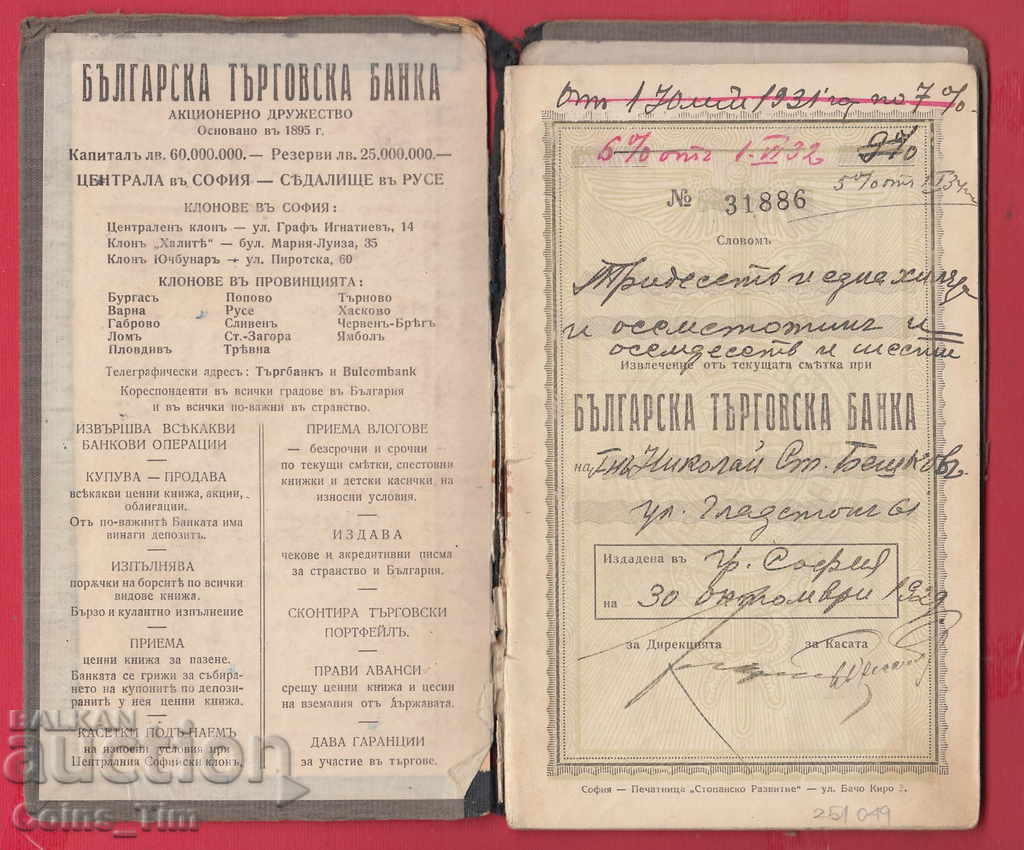 БЪЛГАРСКА ТЪРГОВСКА БАНКА
АКЦИОНЕРНО ДРУЖЕСТВО
Основано въ 1895 г.
Капиталъ лв. 60.000.000.— Резерви лв. 25.000.000.—
ЦЕНТРАЛА въ СОФИЯ — СѢДАЛИЩЕ въ РУСЕ
КЛОНОВЕ ВЪ СОФИЯ :
Централенъ клонъ — ул. Графъ Игнатиевъ, 14
Клонъ „Халитѣ“ — бул. Мария-Луиза, 35
Клонъ Ючбунаръ — ул. Пиротска, 60
КЛОНОВЕ ВЪ ПРОВИНЦИЯТА :
Бургасъ Попово Търново
Варна Русе Хасково
Габрово Сливенъ Червенъ-Брѣгъ
Ломъ Ст.-Загора Ямболъ
Пловдивъ Трѣвна
Телеграфически адресъ : Търгбанкъ и Bulcombank
Кореспонденти въ всички градове въ България
и въ всички по-важни въ странство.
ИЗВЪРШВА ВСѢКАКВИ
БАНКОВИ ОПЕРАЦИИ
КУПУВА — ПРОДАВА
всѣкакви ценни книжа, акции,
облигации.
Отъ по-важнитѣ Банката има
винаги депозитъ.
ИЗПЪЛНЯВА
порѫчки на борситѣ по всички
видове книжа.
Бързо и кулантно изпълнение
ПРИЕМА
ценни книжа за пазене.
Банката се грижи за събира-
нето на купонитѣ по депози-
ранитѣ у нея ценни книжа.
КАСЕТКИ ПОДЪ-НАЕМЪ
на износни условия при
Централния Софийски клонъ.
ПРИЕМА ВЛОГОВЕ
— безсрочни и срочни —
по текущи смѣтки, спестовни
книжки и детски касички на
износни условия.
ИЗДАВА
чекове и акредитивни писма
за странство и България.
СКОНТИРА ТЪРГОВСКИ
ПОРТФЕЙЛЪ.
ПРАВИ АВАНСИ
срещу ценни книжа и цесии
на вземания отъ Държавата.
ДАВА ГАРАНЦИИ
за участие въ търгове.
отъ 1 Юлий 1931 год по 7%
6% отъ 1.VI 32 9%
5% отъ
№ 31886
Словомъ
Тридесеть и една хиляди
и осемстотинъ и
осемдесеть и шесть
Извлечение отъ текущата смѣтка при
БЪЛГАРСКА ТЪРГОВСКА БАНКА
на Г-нъ Николай Ст. Бешковъ
ул. Гладстонъ 61
Издадена въ гр. София
на 30 октомври 1929
за Дирекцията за Касата
София — Печатница „Стопанско Развитие“ — ул. Бачо Киро 2.
251049
BALKAN
auction
Coins_Tim